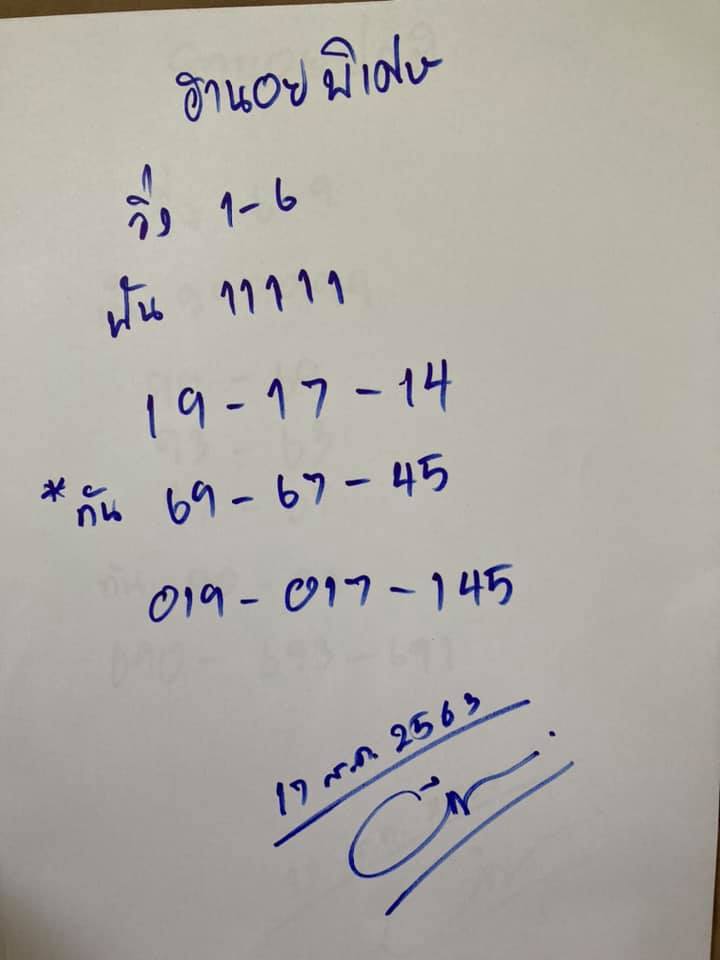 ฮานอยพิเศษ
วิ่ง 1-6
ฟัน 11111
19-17-14
*กัน 69-67-45
019-017-145
17 ส.ค. 2563